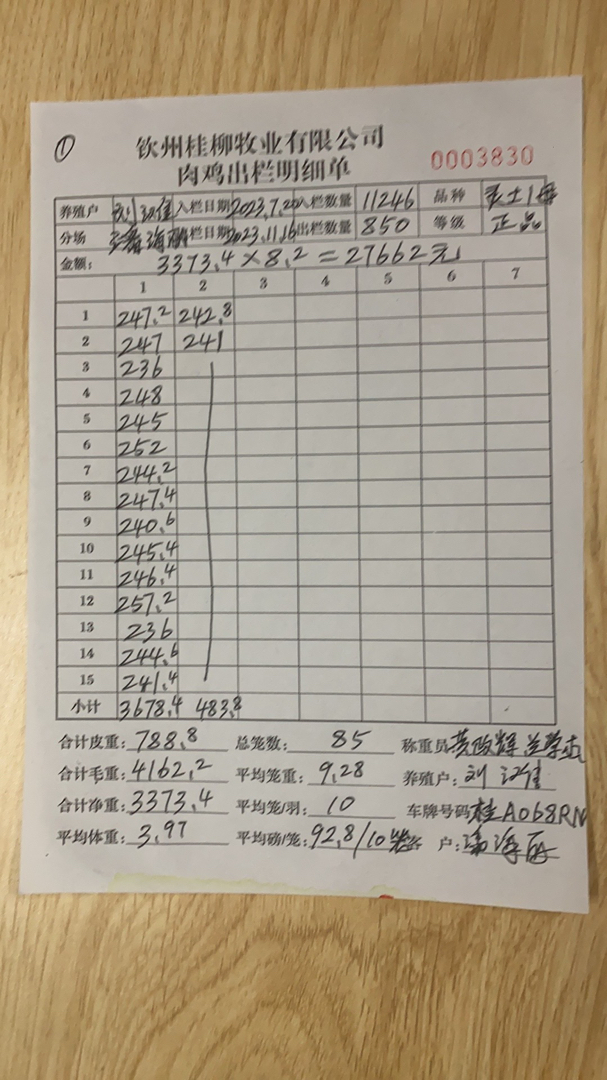 ①
钦州桂柳牧业有限公司
肉鸡出栏明细单
0003830
养殖户 刘 入栏日期 2023.7.20 入栏数量 11246 品种
分场 海丽 出栏日期 2023.11.16 出栏数量 850 等级 正品
金额: 3373.4×8.2=27662元
1 2 3 4 5 6 7
1 247.2 242.8
2 247 241
3 236
4 248
5 245
6 252
7 244.2
8 247.4
9 240.6
10 245.4
11 246.4
12 257.2
13 236
14 244.6
15 241.4
小计 3678.4 483.8
合计皮重: 788.8 总笼数: 85 称重员 黄政辉
合计毛重: 4162.2 平均笼重: 9.28 养殖户: 刘
合计净重: 3373.4 平均笼/羽: 10 车牌号码 桂A068RN
平均体重: 3.97 平均磅/笼: 92.8/10笼 客 户: 海丽